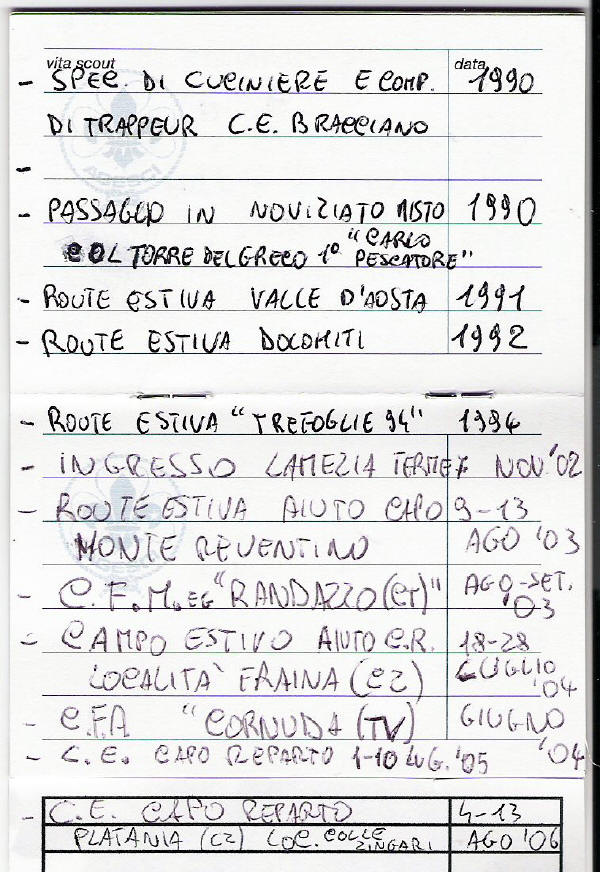 vita scout data
- SPEC. DI CUCINIERE E COMP. 1990
DI TRAPPEUR C.E. BRACCIANO
-
- PASSAGGIO IN NOVIZIATO MISTO 1990
COL TORRE DEL GRECO 1° "CARLO PESCATORE"
- ROUTE ESTIVA VALLE D'AOSTA 1991
- ROUTE ESTIVA DOLOMITI 1992
- ROUTE ESTIVA "TREFOGLIE 94" 1994
- INGRESSO LAMEZIA TERME 7 NOV. '02
- ROUTE ESTIVA AIUTO CAPO 9-13
MONTE REVENTINO AGO '03
- C.F.M. EG "RANDAZZO (CT)" AGO-SET. '03
- CAMPO ESTIVO AIUTO C.R. 18-28
LOCALITA' FRAINA (CZ) LUGLIO '04
- C.F.A "CORNUDA (TV) GIUGNO '04
- C.E. CAPO REPARTO 1-10 LUG. '05
- C.E. CAPO REPARTO 4-13
PLATANIA (CZ) LOC. COLLE ZINGARI AGO '06
AGESCI